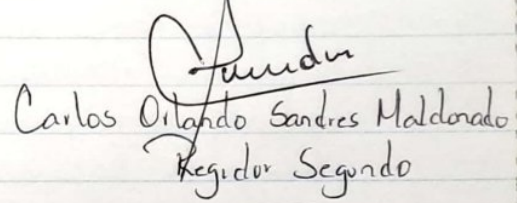 Carlos Orlando Sandres Maldonado
Regidor Segundo